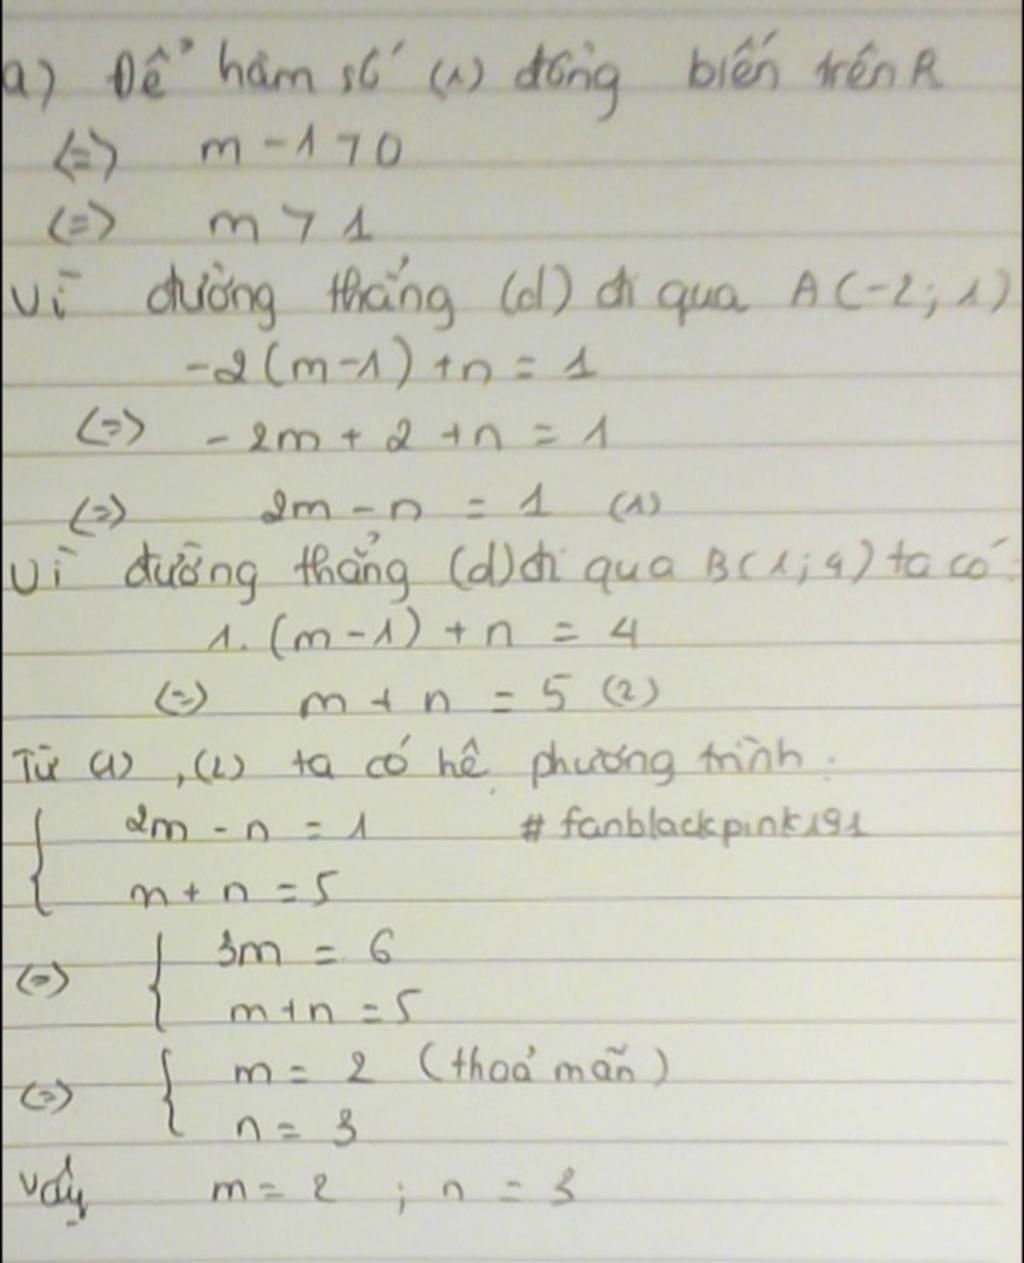 a) Để hàm số (1) đồng biến trên R
(=) m - 1 > 0
(=) m > 1
Vì đường thẳng (d) đi qua A(-2; 1)
-2(m-1) + n = 1
(=) - 2m + 2 + n = 1
(=) 2m - n = 1 (1)
Vì đường thẳng (d) đi qua B(1; 4) ta có:
1. (m-1) + n = 4
(=) m + n = 5 (2)
Từ (1), (2) ta có hệ phương trình:
{ 2m - n = 1 # fanblackpink191
m + n = 5
(=) { 3m = 6
m + n = 5
(=) { m = 2 (thoả mãn)
n = 3
Vậy m = 2 ; n = 3